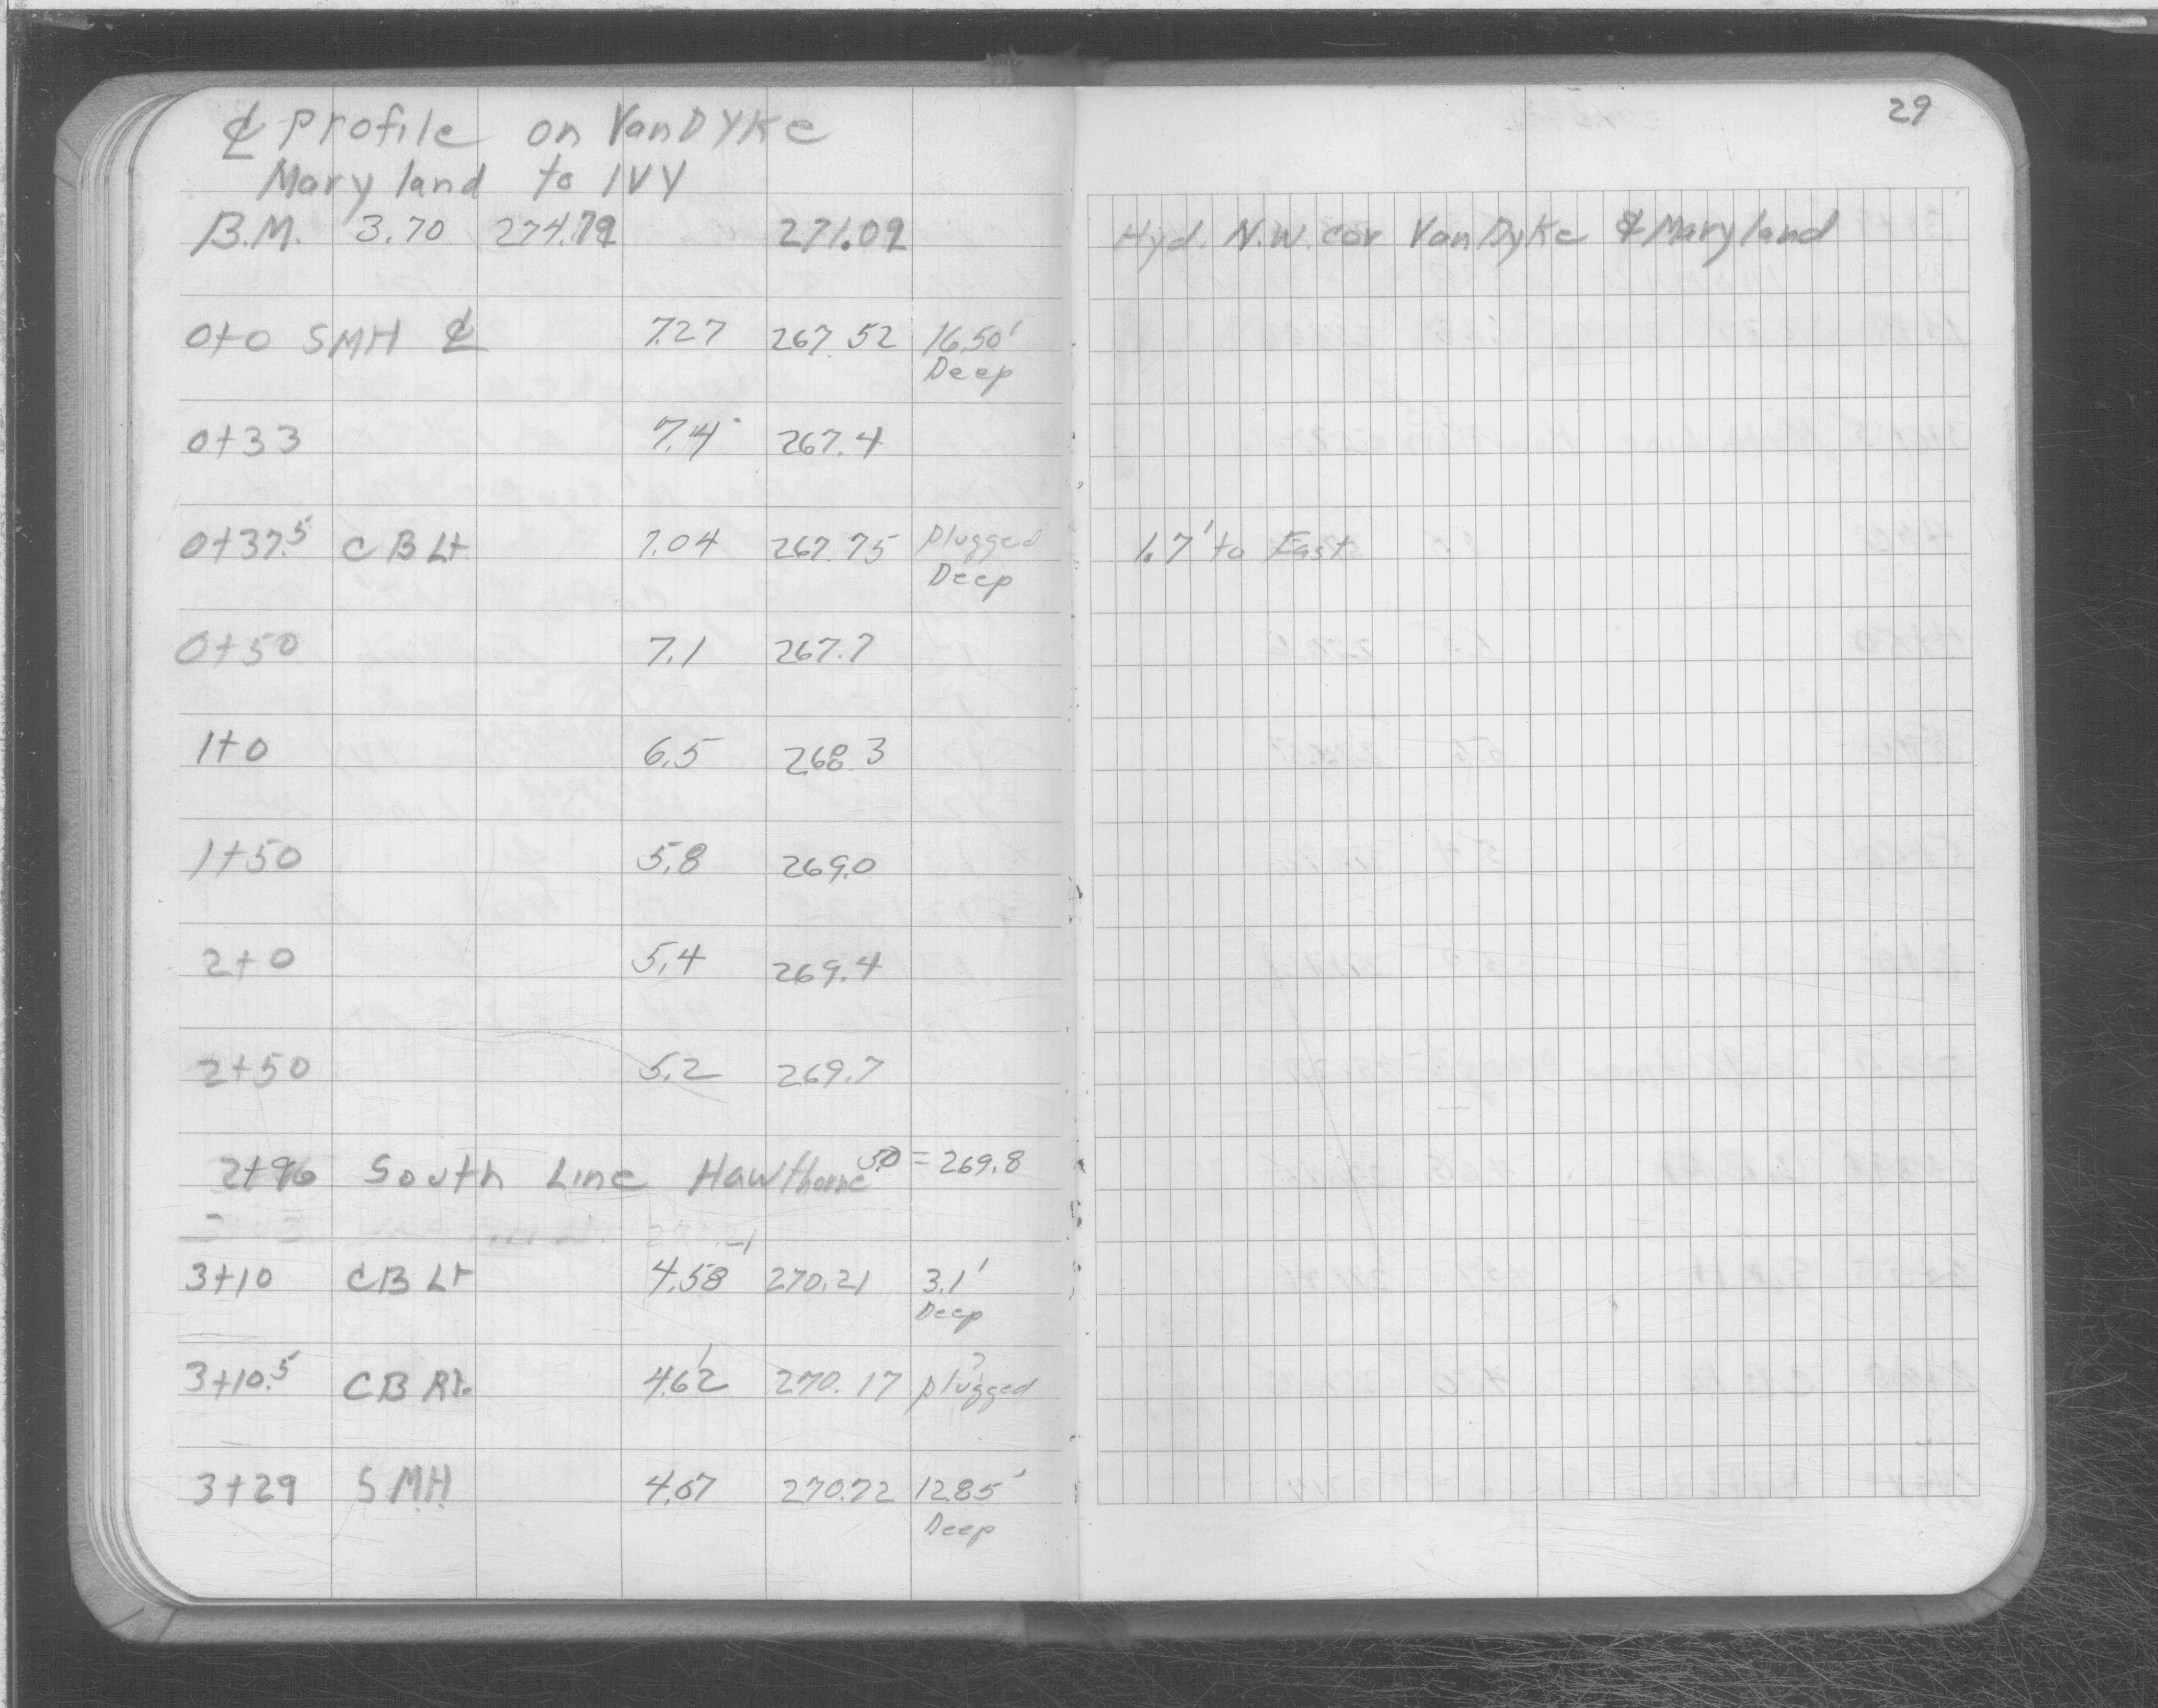 29
℄ Profile on VanDyke
Maryland to IVY
B.M. 3.70 274.79 271.09 Hyd. N.W. cor VanDyke & Maryland
0+0 SMH ℄ 7.27 267.52 16.50'
Deep
0+33 7.4 267.4
0+37.5 CB Lt. 7.04 267.75 Plugged 1.7' to East
Deep
0+50 7.1 267.7
1+0 6.5 268.3
1+50 5.8 269.0
2+0 5.4 269.4
2+50 5.2 269.7
2+96 South Line Hawthorne 5.0 = 269.8
3+10 CB Lt 4.58 270.21 3.1'
Deep
3+10.5 CB Rt. 4.62 270.17 plugged
3+29 S.M.H. 4.07 270.72 12.85'
Deep